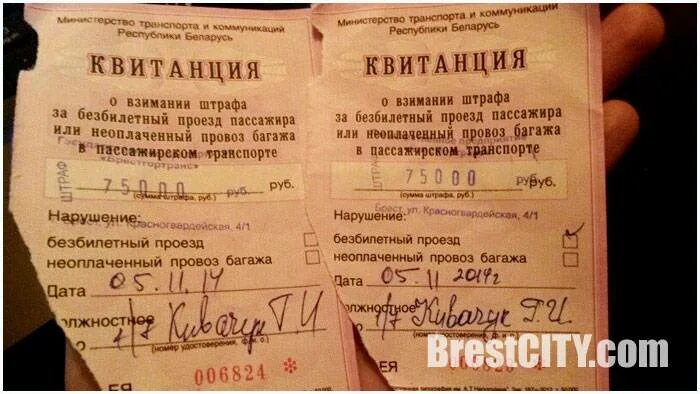 Министерство транспорта и коммуникаций
Республики Беларусь
КВИТАНЦИЯ
о взимании штрафа
за безбилетный проезд пассажира
или неоплаченный провоз багажа
в пассажирском транспорте
ШТРАФ 75000 руб. руб.
(сумма штрафа, руб.)
Брест, ул. Красногвардейская, 4/1
Нарушение:
безбилетный проезд
неоплаченный провоз багажа
Дата 05.11.14
должностное
Кивачук Г.И
(номер удостоверения, ф.и.о.)
ЕЯ 006824 *
Министерство транспорта и коммуникаций
Республики Беларусь
КВИТАНЦИЯ
о взимании штрафа
за безбилетный проезд пассажира
или неоплаченный провоз багажа
в пассажирском транспорте
ШТРАФ 75000 руб. руб.
(сумма штрафа, руб.)
Брест, ул. Красногвардейская, 4/1
Нарушение:
безбилетный проезд
неоплаченный провоз багажа
Дата 05.11 2014г
должностное
Кивачук Г.И.
(номер удостоверения, ф.и.о.)
ЕЯ 006823 *
BrestCITY.com